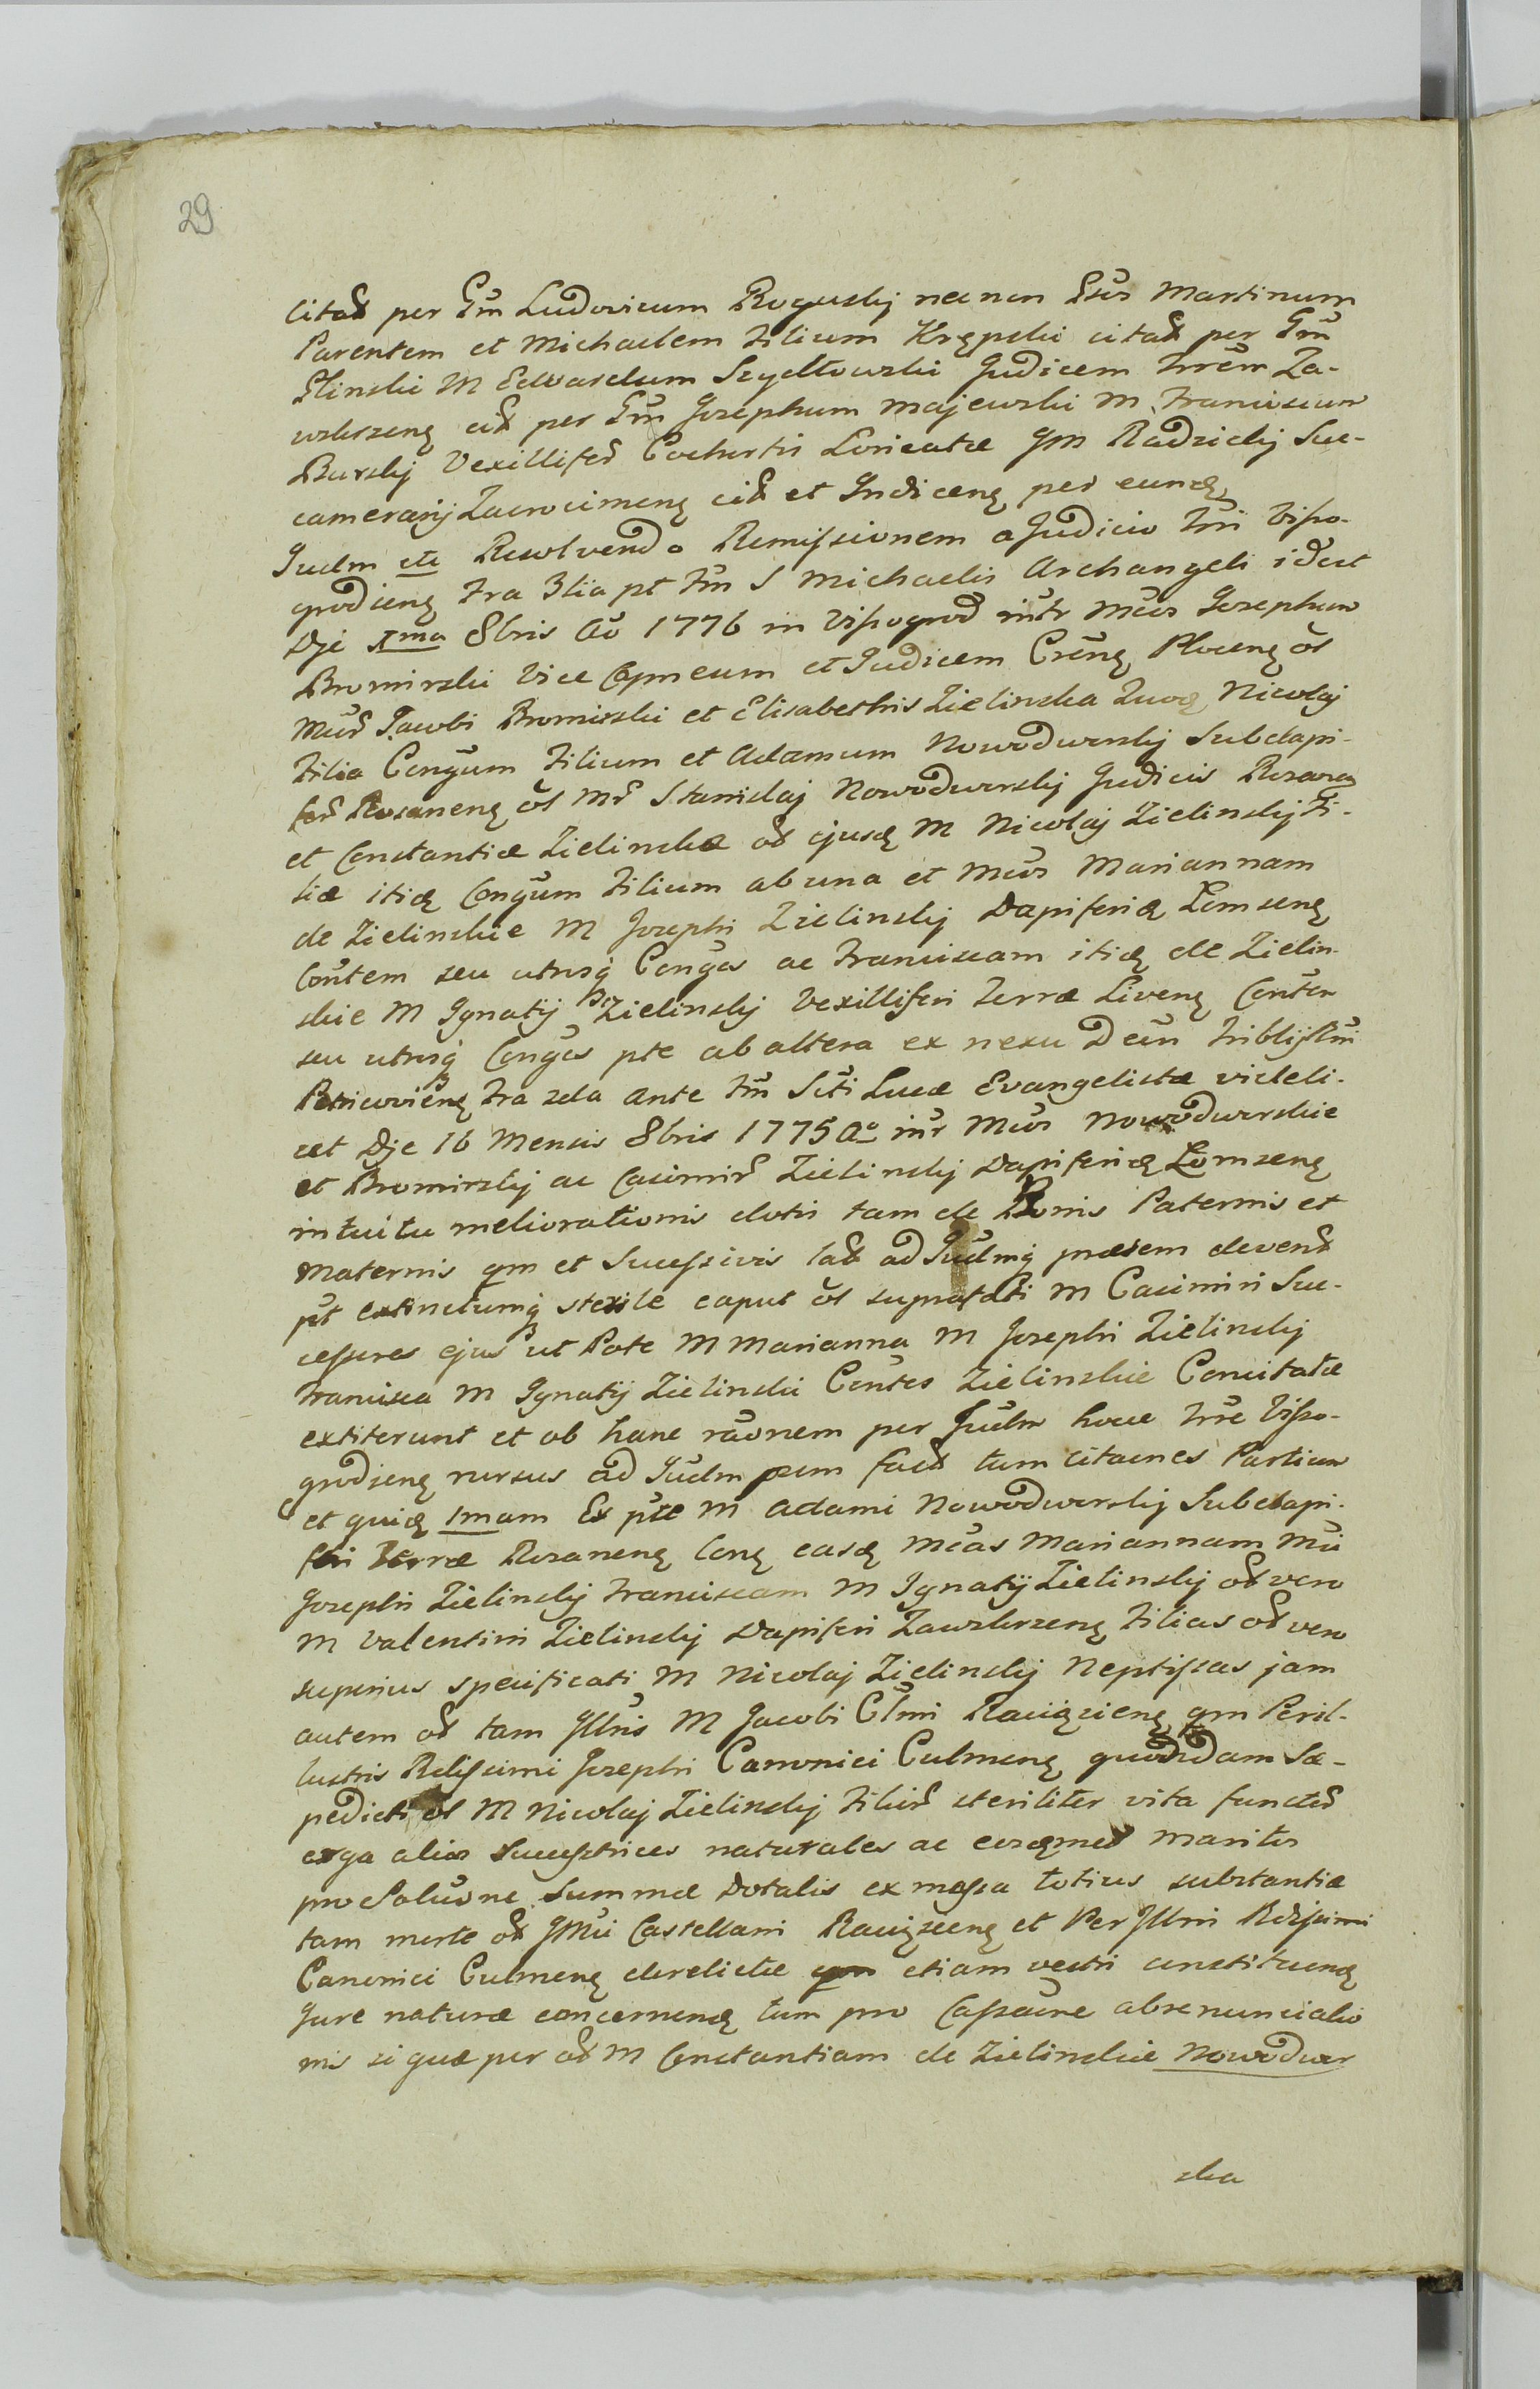 29
Citaŏ per Gm̃ Ludovicum Roguskij necnon Gsos Martinum
Parentem et Michaelem Filium Krępski citaŏ per Gm̃
Glinski M Edwardum Szydłowski Judicem Trrem̃ Za-
wskrzenę ciŏ per Gm̃ Josephum Majewski M Franciscum
Burskij Vexilliferŏ Cochortis Loricatæ Gm Radzickij Suc-
camerarij Zacrocimenę ciŏ et Indicenę per eundę
Judm etc Resolvendo Remissionem a Judicio Trri Visso-
grodienę Fra 3tia pt Fm̃ S Michaelis Archangeli idest
Dje 1ma 8bris Aõ 1776 in Vissogrod intr Mcos Josephum
Bromirski Vice Capneum et Judicem Crẽnę Plocenę ol
Mcor̃ Jacobi Bromirski et Elisabethis Zielinska Quoę Nicolaj
Filia Congum Filium et Adamum Nowodworskij Subdapi-
ferŏ Rosanenę ol Mr̃ Stanislaj Nowodworskij Judicis Rosanenę
et Constantiæ Zielinskæ oŏ ejusę M Nicolaj Zielinskij Fi-
liæ itię Congum Filium ab una et Mcos Mariannam
de Zielinskie M Josephi Zielinskij Dapiferię Łomzenę
Contem seu utrusq Congos ac Franciscam itię de Zielin-
skie M Ignatij Zielinskij Vexilliferi Terræ Livenę Conten
seu utrusq Congos pte ab altera ex nexu Decñ Triblij Rni
Petricovienę Fra 2da ante Fm̃ Scti Lucæ Evangelistæ videli-
cet Dje 16 Mensis 8bris 1775 Ao intr Mcos Nowodworskie
et Bromirskij ac Casimirŏ Zielinskij Dapiferię Łomzenę
intuitu meliorationis dotis tam de Bonis Paternis et
Maternis qm et Sucessivis laŏ ad Judmq præsem devenŏ
pt extinctumq sterile caput ol suprafati M Casimiri Suc-
cessores ejus ut Pote M Marianna M Josephi Zielinskij
Francisca M Ignatij Zielinski Contes Zielinskie Concitatæ
extiterunt et ob hanc raõnem per Judm hocce Trre Visso-
grodienę rursus ad Judm psm facŏ tum citacnes Partium
et quię 1mam Ex pte M Adami Nowodworskij Subdapi-
feri Terræ Rosanenę Conę easę Mcas Mariannam Mci
Josephi Zielinskij Franciscam M Ignatij Zielinskij oŏ vero
M Valentini Zielinskij Dapiferi Zawskrzenę Filias oŏ vero
superius specificati M Nicolaj Zielinskij Neptissas jam
autem oŏ tam Jllris M Jacobi Clmi Raciązienę qm Peril-
lustris Rdissimi Josephi Canonici Culmenę quondam Sæ-
pedicti ol M Nicolaj Zielinskij Filiorŏ steriliter vita functorŏ
erga alios Sucesstrices naturales ac earęmeŏ maritos
pro Soluõne Summæ Dotalis ex massa totius substantiæ
tam morte oŏ Jllmi Castellani Raciązcenę et Per Jllris Rdissimi
Canonici Culmenę derelictæ qm etiam vestri constituenę
Jure naturæ concernenę tum pro Cassacnė abrenunciatio
nis si quæ per oŏ M Constantiam de Zielinskie Nowodwor
ska